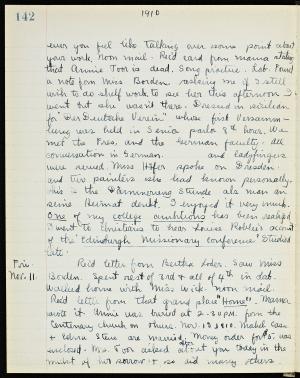 142
1910
ever you feel like talking over some point about
your work. Noon mail. Rec'd card from mama stating
that Annie Toor is dead. Song practice. Lab. Found
a note from Miss Borden, asking me if I still
wish to do shelf work, to see her this afternoon. I
went but she wasn't there. Dressed in
for "Der Deutsche Verein" whose first Versamm-
lung was held in Senior parlor 8th hour. We
met the Pres. and the German faculty. All
conversation in German. and ladyfingers
were served. Miss spoke on Dresden
and two painters she had known personally.
This is the Dämmerung Stunde als man an
seine Heimat denkt. I enjoyed it very much.
One of my college ambitions has been realized.
I went to Christians to hear Louise Robie's account
of the "Edinburgh Missionary Conference". Studied
late.
Fri. Rec'd letter from Bertha Loder. Saw Miss
Nov. 11. Borden. Spent rest of 3rd + all of 4th in lab.
Walked home with Miss Wick. Noon mail.
Rec'd letter from that grand place "Home". Mama
wrote it. Annie was buried at 2:30 P.M. from the
Centenary church on Thurs. Nov. 10 1910. Mabel Case
+ Sters are married. Money order for $5. was
enclosed. Mr. Toor asked after you Daisy in the
midst of his sorrow + so did many others.